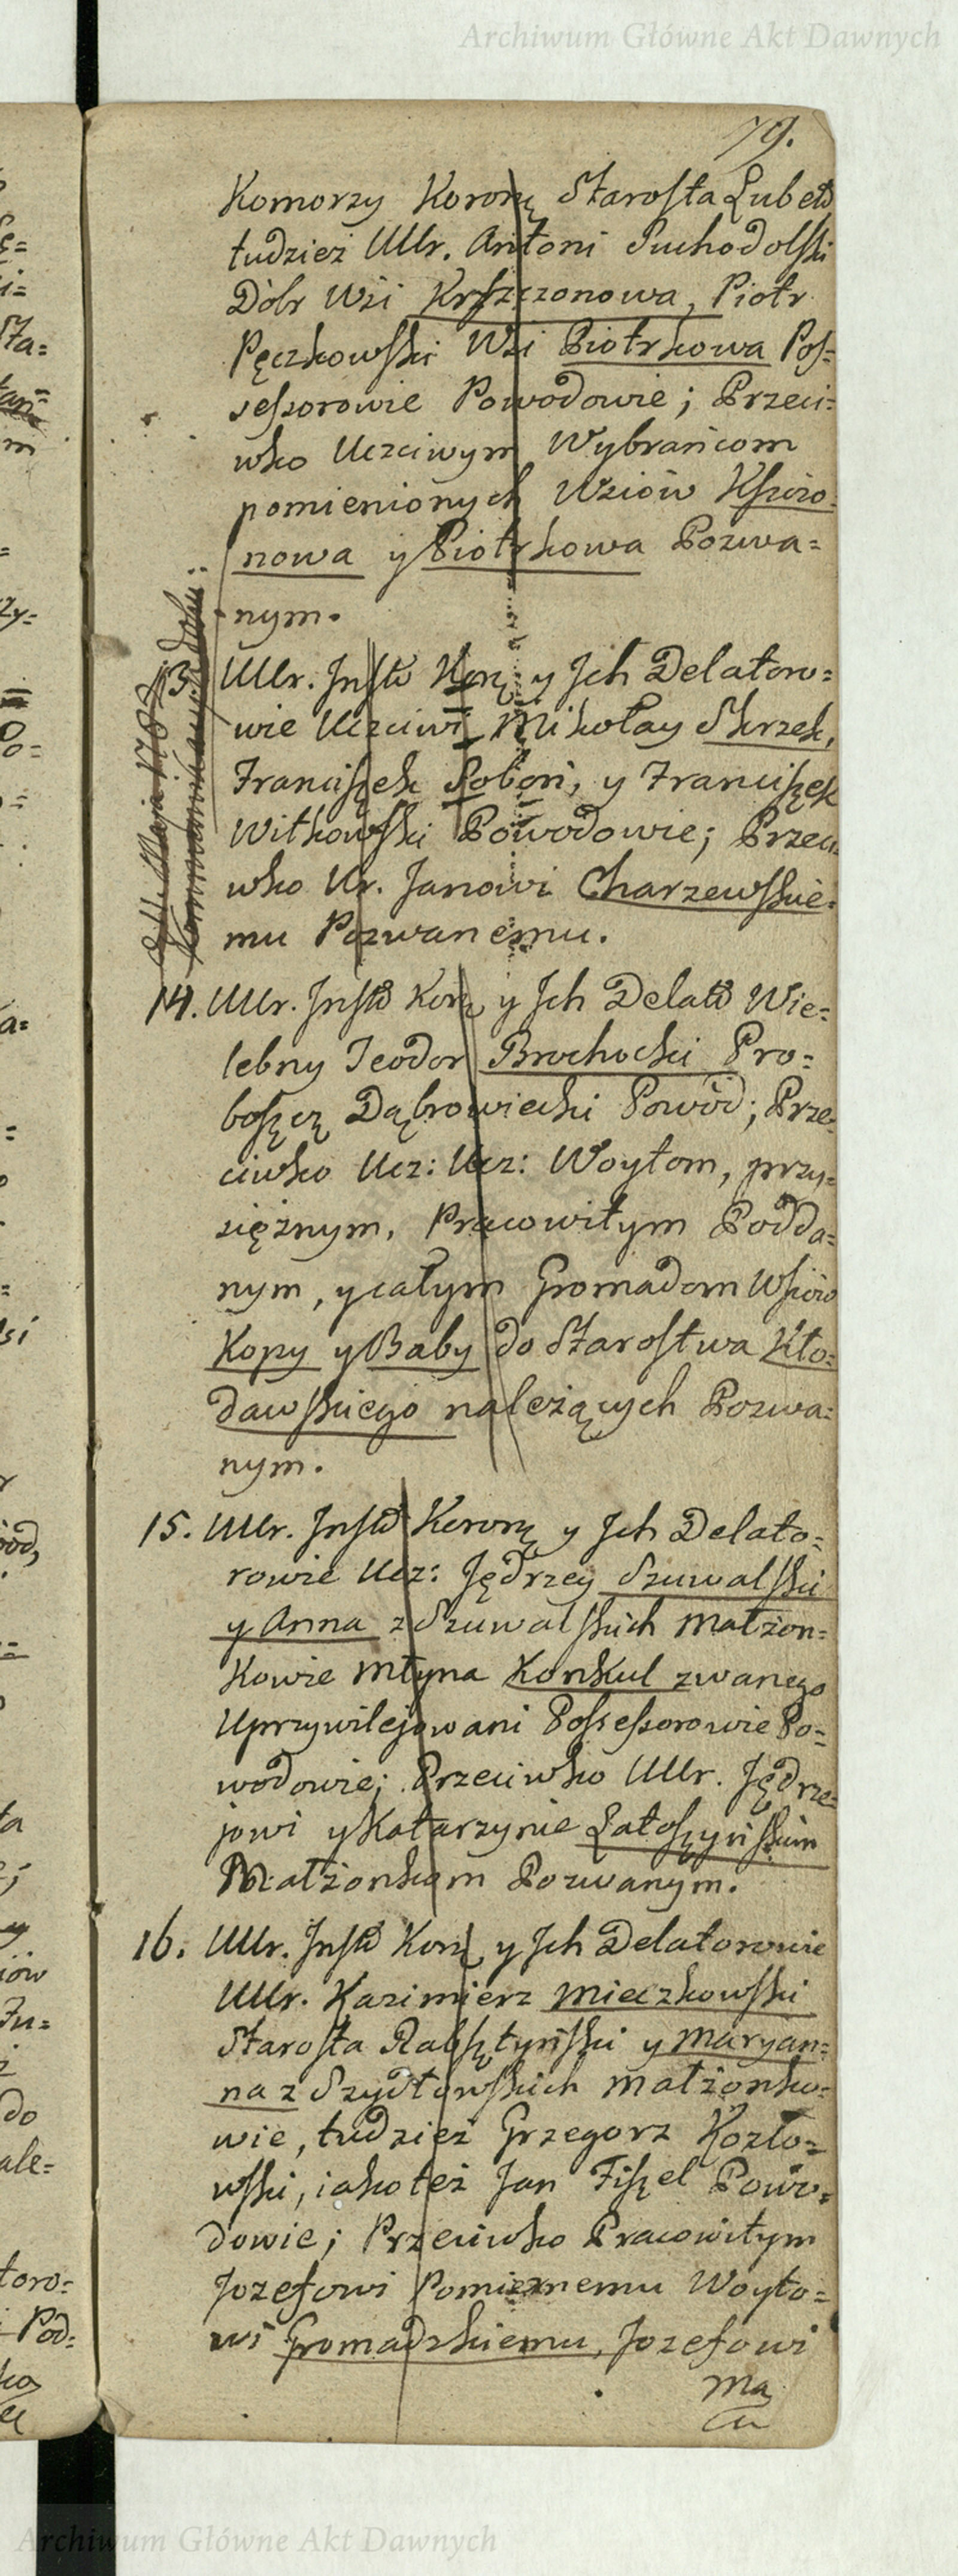 Archiwum Główne Akt Dawnych
79.
Komorzy Koronę Starosta Lubel̃s
tudzież Ur. Antoni Suchodolski
Dóbr Wśi Krszczonowa, Piotr
Pęczkowski Wsi Piotrkowa Pos=
sessorowie Powodowie; Przeci=
wko Uczciwym Wybrańcom
pomienionych Wsiów Kszczo=
nowa y Piotrkowa Pozwa=
nym.
13. Ur. Inst̃ Korę y Jch Delatoro=
wie Uczciwi Mikołay Skrzek,
Franciszek Soboń, y Franciszek
Witkowski Powodowie; Przeci=
wko Ur. Janowi Charzewskie=
mu Pozwanemu.
14. Ur. Inst̃ Korę y Jch Delat̃ Wie=
lebny Teodor Brochocki Pro=
boszcz Dąbrowiecki Powód; Prze=
ciwko Ucz: Ucz: Woytom, przy=
siężnym, Pracowitym Podda=
nym, y całym Gromadom Wsiów
Kopy y Baby do Starostwa Kło=
dawskiego należących Pozwa=
nym.
15. Ur. Inst̃ Koronę y Jch Delato=
rowie Ucz: Jędrzey Szuwalski
y Anna z Szuwalskich Małżon=
kowie Młyna Konkul zwanego
Uprzywilejowani Possessorowie Po=
wodowie; Przeciwko Ur. Jędrze=
jowi y Katarzynie Latoszyńskim
Małżonkom Pozwanym.
16. Ur. Inst̃ Korę y Jch Delatorowie
Ur. Kazimierz Mieczkowski
Starosta Rabsztyński y Maryan=
na z Szydłowskich Małżonko=
wie, tudzież Grzegorz Kozło=
wski, iako też Jan Fiszel Powo=
dowie; Przeciwko Pracowitym
Jozefowi Pomiernemu Woyto=
wi Gromadzkiemu, Jozefowi
Ma
Archiwum Główne Akt Dawnych